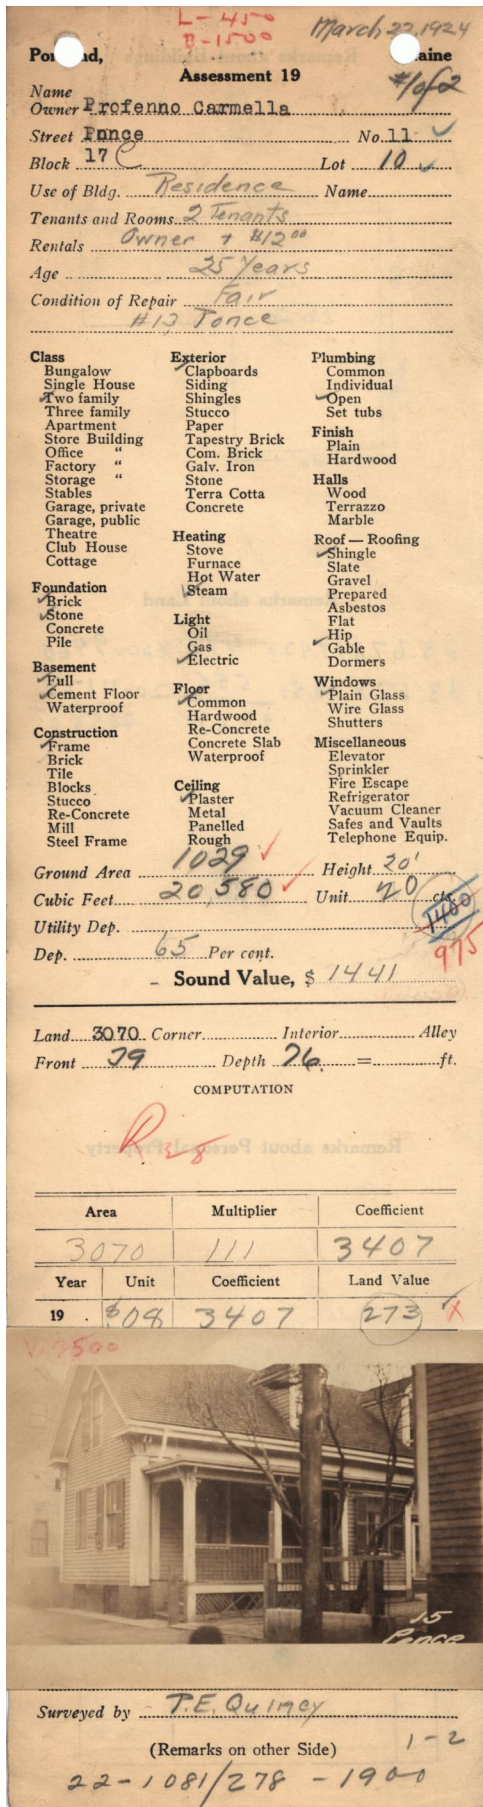 L-450
B-1500
March 22, 1924
Portland, Maine
Assessment 19
#1 of 2
Name
Owner Profenno Carmella
Street Ponce No. 11
Block 17 C Lot 10
Use of Bldg. Residence Name
Tenants and Rooms 2 Tenants
Rentals Owner + $12.00
Age 25 Years
Condition of Repair Fair
#13 Ponce
Class
Bungalow
Single House
Two family
Three family
Apartment
Store Building
Office "
Factory "
Storage "
Stables
Garage, private
Garage, public
Theatre
Club House
Cottage
Foundation
Brick
Stone
Concrete
Pile
Basement
Full
Cement Floor
Waterproof
Construction
Frame
Brick
Tile
Blocks
Stucco
Re-Concrete
Mill
Steel Frame
Exterior
Clapboards
Siding
Shingles
Stucco
Paper
Tapestry Brick
Com. Brick
Galv. Iron
Stone
Terra Cotta
Concrete
Heating
Stove
Furnace
Hot Water
Steam
Light
Oil
Gas
Electric
Floor
Common
Hardwood
Re-Concrete
Concrete Slab
Waterproof
Ceiling
Plaster
Metal
Panelled
Rough
Plumbing
Common
Individual
Open
Set tubs
Finish
Plain
Hardwood
Halls
Wood
Terrazzo
Marble
Roof — Roofing
Shingle
Slate
Gravel
Prepared
Asbestos
Flat
Hip
Gable
Dormers
Windows
Plain Glass
Wire Glass
Shutters
Miscellaneous
Elevator
Sprinkler
Fire Escape
Refrigerator
Vacuum Cleaner
Safes and Vaults
Telephone Equip.
Ground Area 1029 Height 20'
Cubic Feet 20,580 Unit 20 cts.
1400
Utility Dep.
975
Dep. 65 Per cent.
- Sound Value, $ 1441
Land 3070 Corner Interior Alley
Front 39 Depth 76 = ft.
COMPUTATION
Res
Area Multiplier Coefficient
3070 111 3407
Year Unit Coefficient Land Value
19 . $08 3407 273
15
Ponce
Surveyed by T.E. Quincy
(Remarks on other Side)
1-2
22-1081/278 - 1900